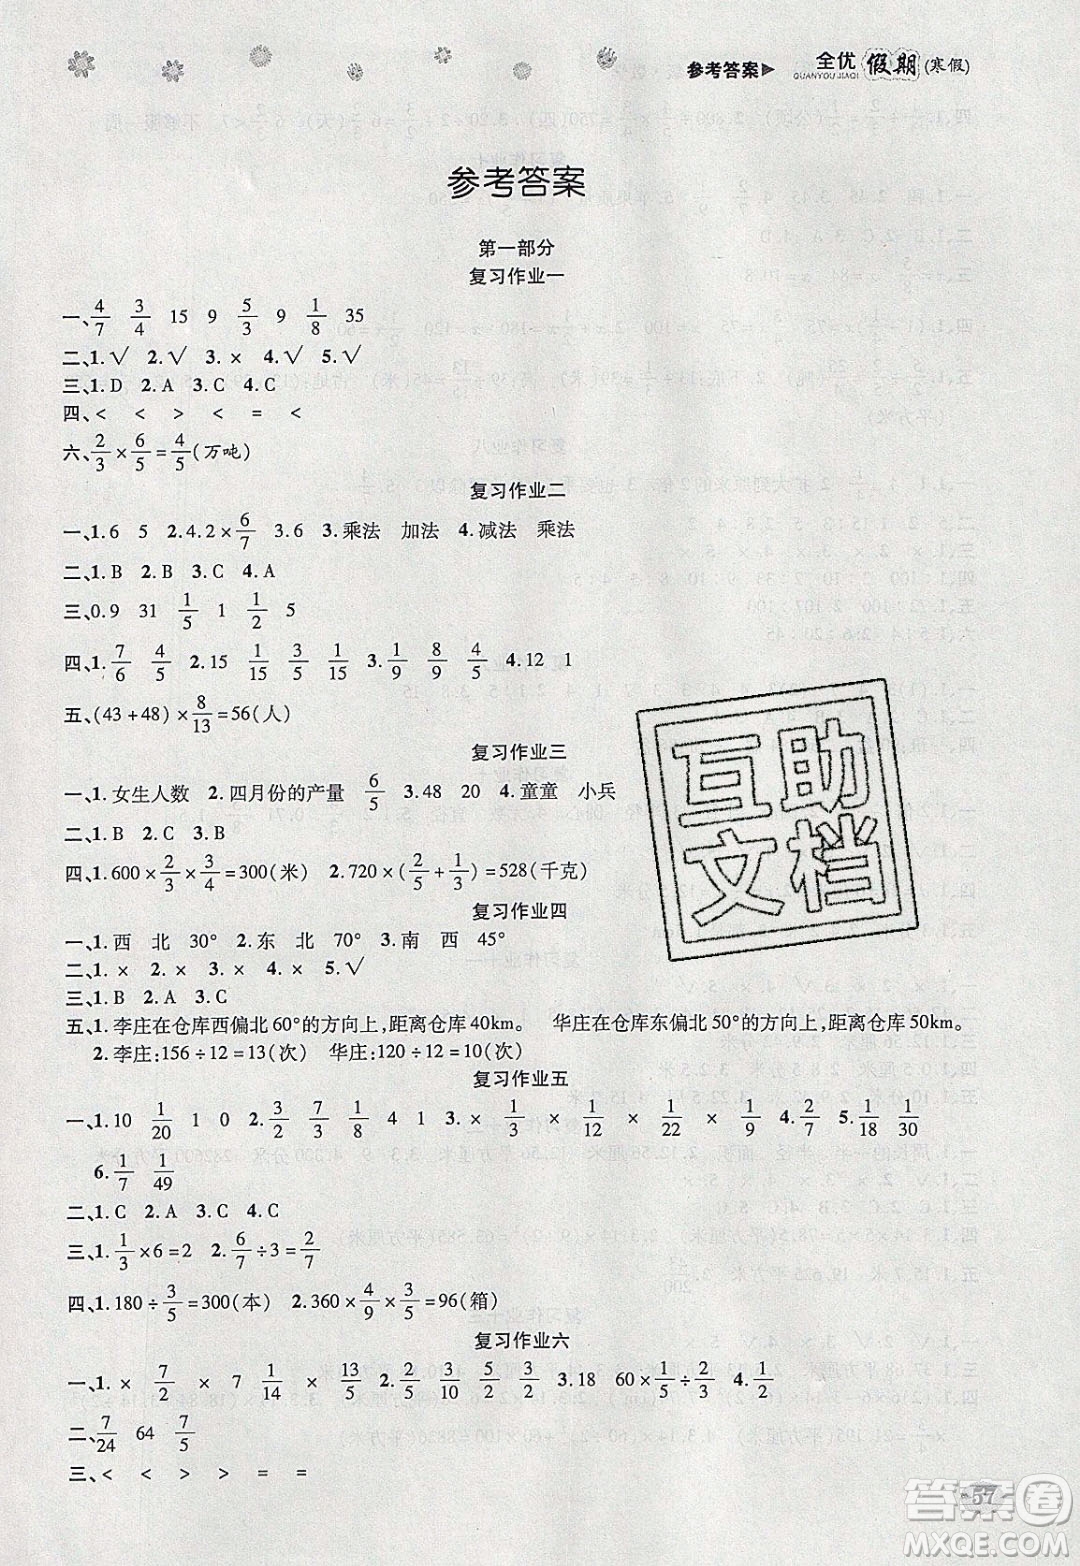 参考答案 全优假期(寒假)
QUANYOU JIAQI
参考答案
第一部分
复习作业一
一、4/7 3/4 15 9 5/3 9 1/8 35
二、1.√ 2.√ 3.× 4.√
三、1.D 2.A 3.C 4.C
四、< < > > < = <
六、2/3×6/5=4/5(万吨)
复习作业二
一、1.6 5 2.4.2×6/7 3.6 3.乘法 加法 4.减法 乘法
二、1.B 2.A 3.C 4.B
三、0.9 31 1/5 1 1/2 5
四、1.7/6 4/5 2.15 1/15 3/5 1/15 3.1/9 8/9 4/5 4.12 1
五、(43+48)×8/13=56(人)
复习作业三
一、1.女生人数 2.四月份的产量 6/5 3.48 20 4.童童 小兵
二、1.B 2.C 3.B
四、1.600×2/3×3/4=300(米) 2.720×(2/5+1/3)=528(千克)
复习作业四
一、1.西 北 30° 2.东 北 70° 3.南 西 45°
二、1.× 2.× 3.× 4.× 5.√
三、1.B 2.A 3.C
五、1.李庄在仓库西偏北60°的方向上,距离仓库40km。 华庄在仓库东偏北50°的方向上,距离仓库50km。
2.李庄:156÷12=13(次) 华庄:120÷12=10(次)
复习作业五
一、1.10 1/20 1 0 2.3/2 7/3 1/8 4 1 3.× 1/3 × 1/12 × 1/22 × 1/9 4.7/6 5.1/18 1/30
6.1/7 1/49
二、1.C 2.A 3.C 4.C
三、1.1/3×6=2 2.6/7÷3=2/7
四、1.180÷3/5=300(本) 2.360×4/9×3/5=96(箱)
复习作业六
一、1.× 7/2 × 7 1/14 × 13/5 2.2/3 3/10 5/2 3/2 3.18 60×1/5÷2/3 4.1/2
二、7/24 64 7/5
三、< < > > = =
57
互助文档
答案圈
MXQE.COM